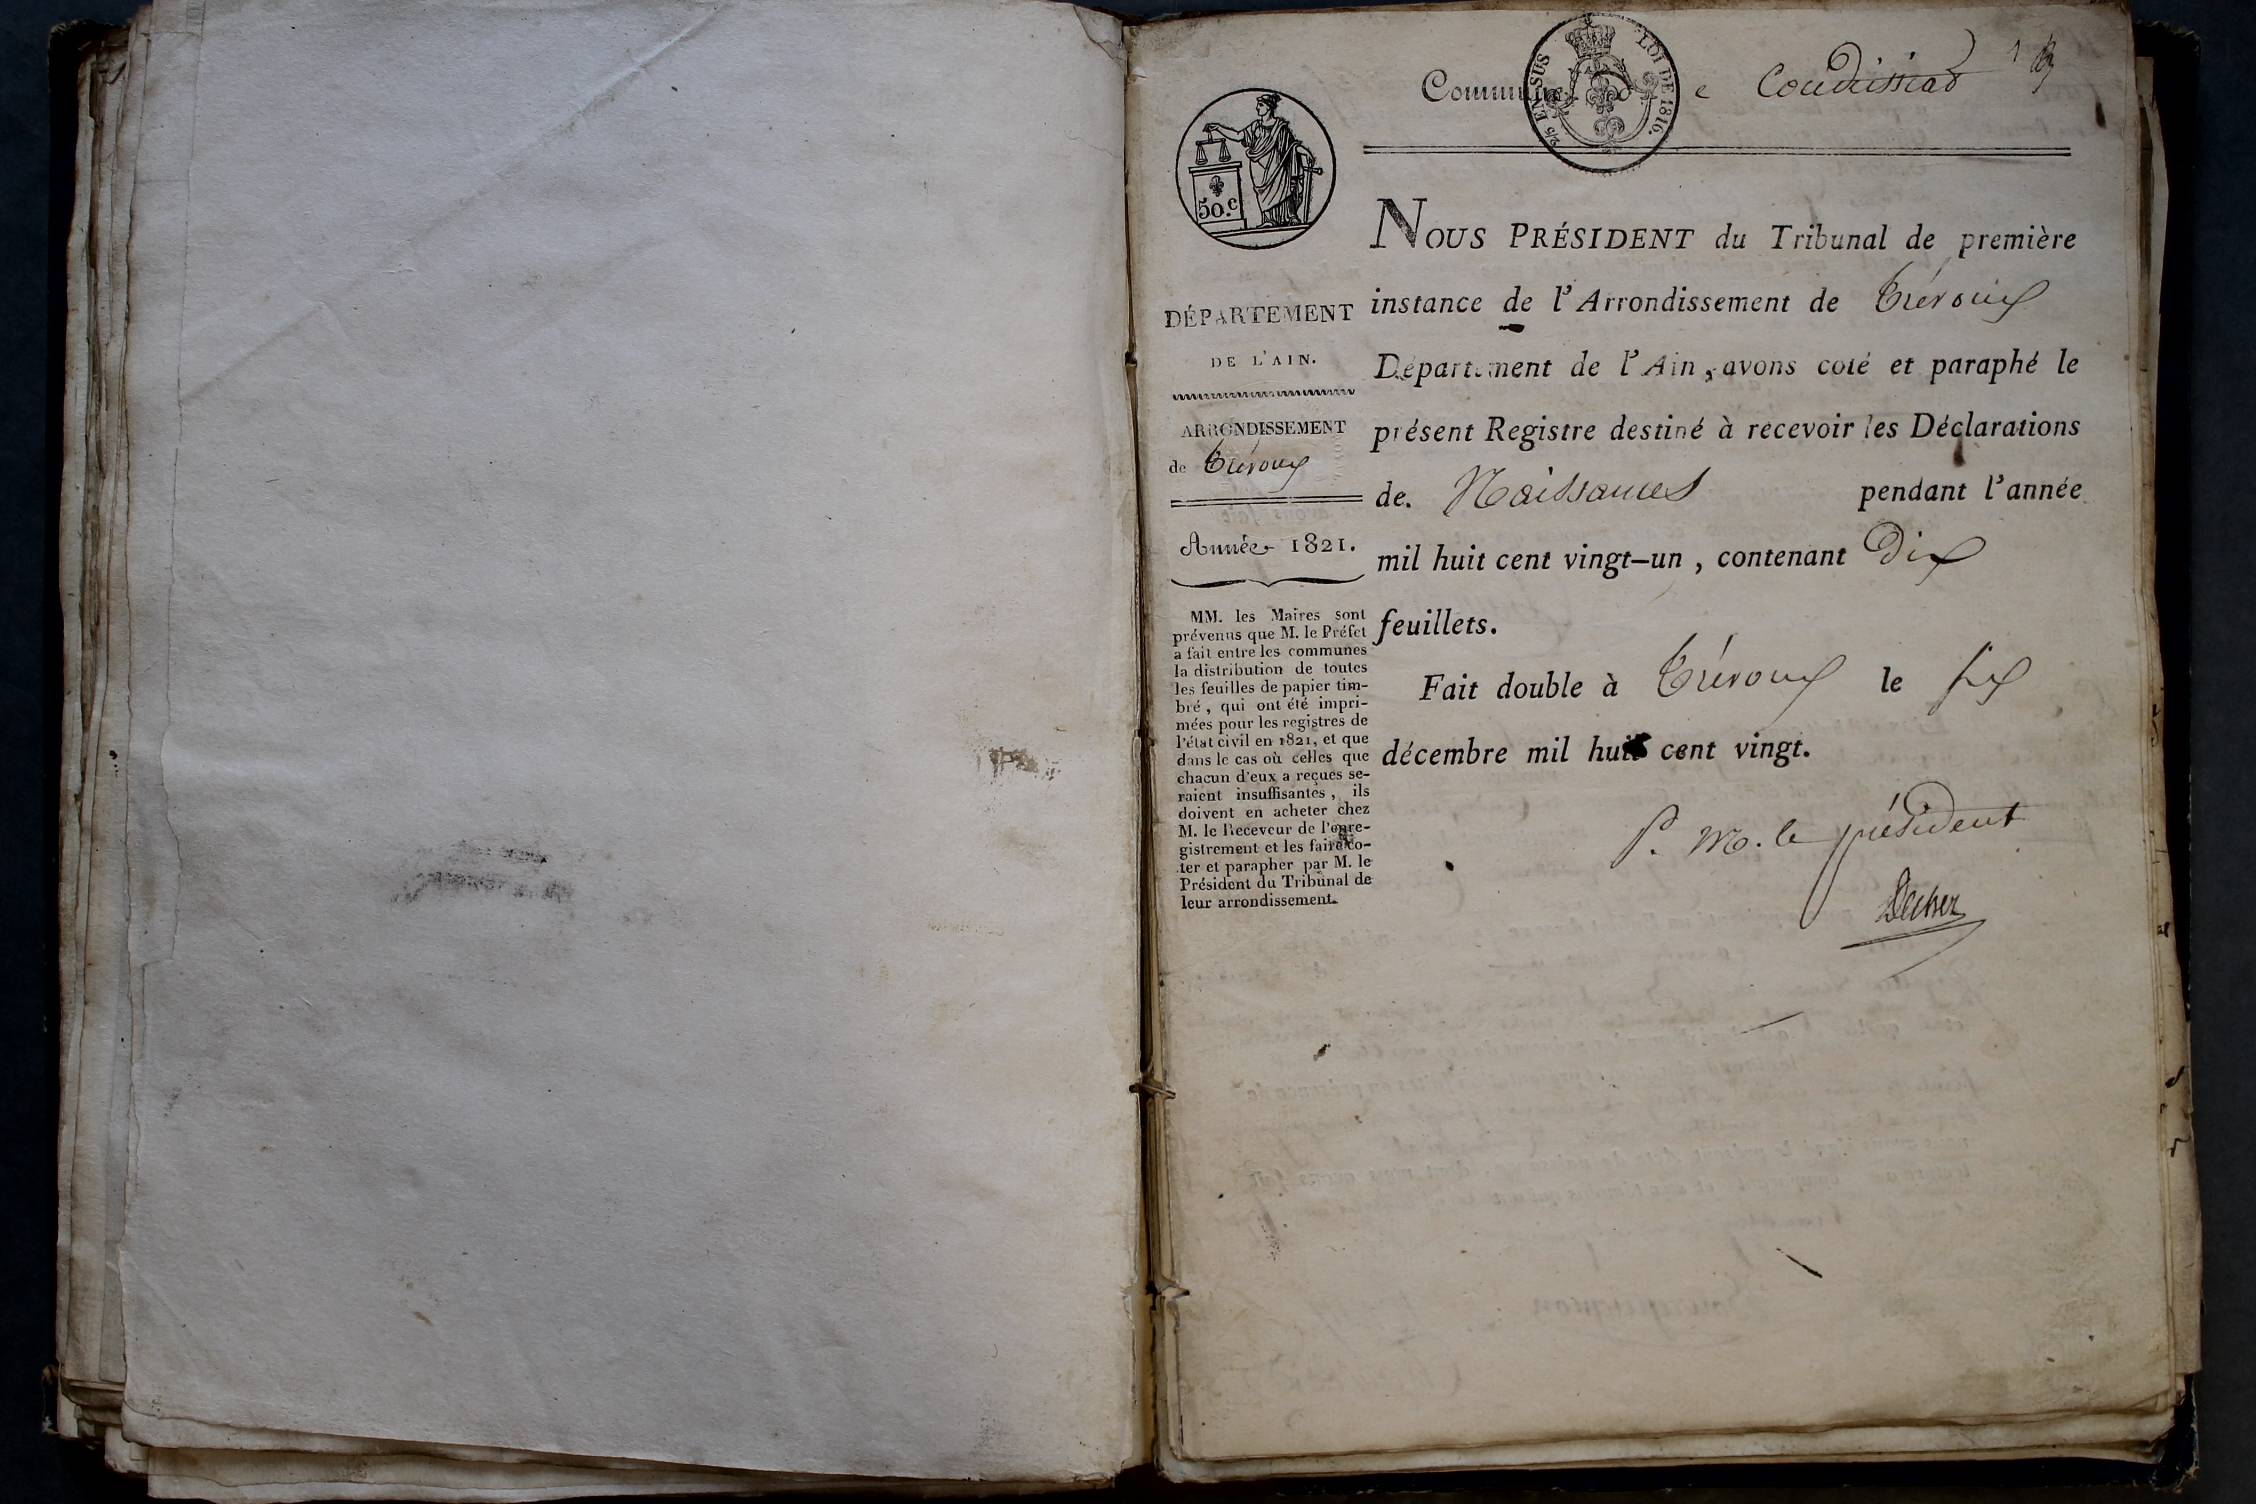 Commune de Condeissiat 1
2/5 EN SUS LOI DE 1816.
50.c
NOUS PRÉSIDENT du Tribunal de première
instance de l'Arrondissement de Trévoux
Département de l'Ain, avons coté et paraphé le
présent Registre destiné à recevoir les Déclarations
de Naissances pendant l'année
mil huit cent vingt-un, contenant Dix
feuillets.
Fait double à Trévoux le six
décembre mil huit cent vingt.
P. M. le président
DÉPARTEMENT
DE L'AIN.
ARRONDISSEMENT
de Trévoux
Année 1821.
MM. les Maires sont
prévenus que M. le Préfet
a fait entre les communes
la distribution de toutes
les feuilles de papier tim-
bré, qui ont été impri-
mées pour les registres de
l'état civil en 1821, et que
dans le cas où celles que
chacun d'eux a reçues se-
raient insuffisantes, ils
doivent en acheter chez
M. le Receveur de l'enre-
gistrement et les faire co-
ter et parapher par M. le
Président du Tribunal de
leur arrondissement.